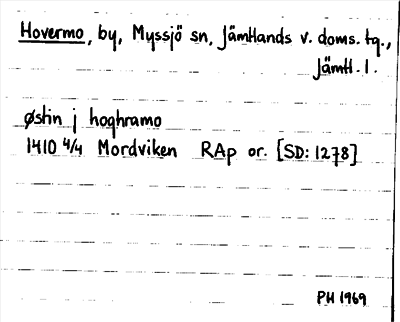 Hovermo, by, Myssjö sn, Jämtlands v. doms. tg.,
Jämtl. l.
østin j hoghramo
1410 4/4 Mordviken RAp or. [SD: 1278]
PH 1969